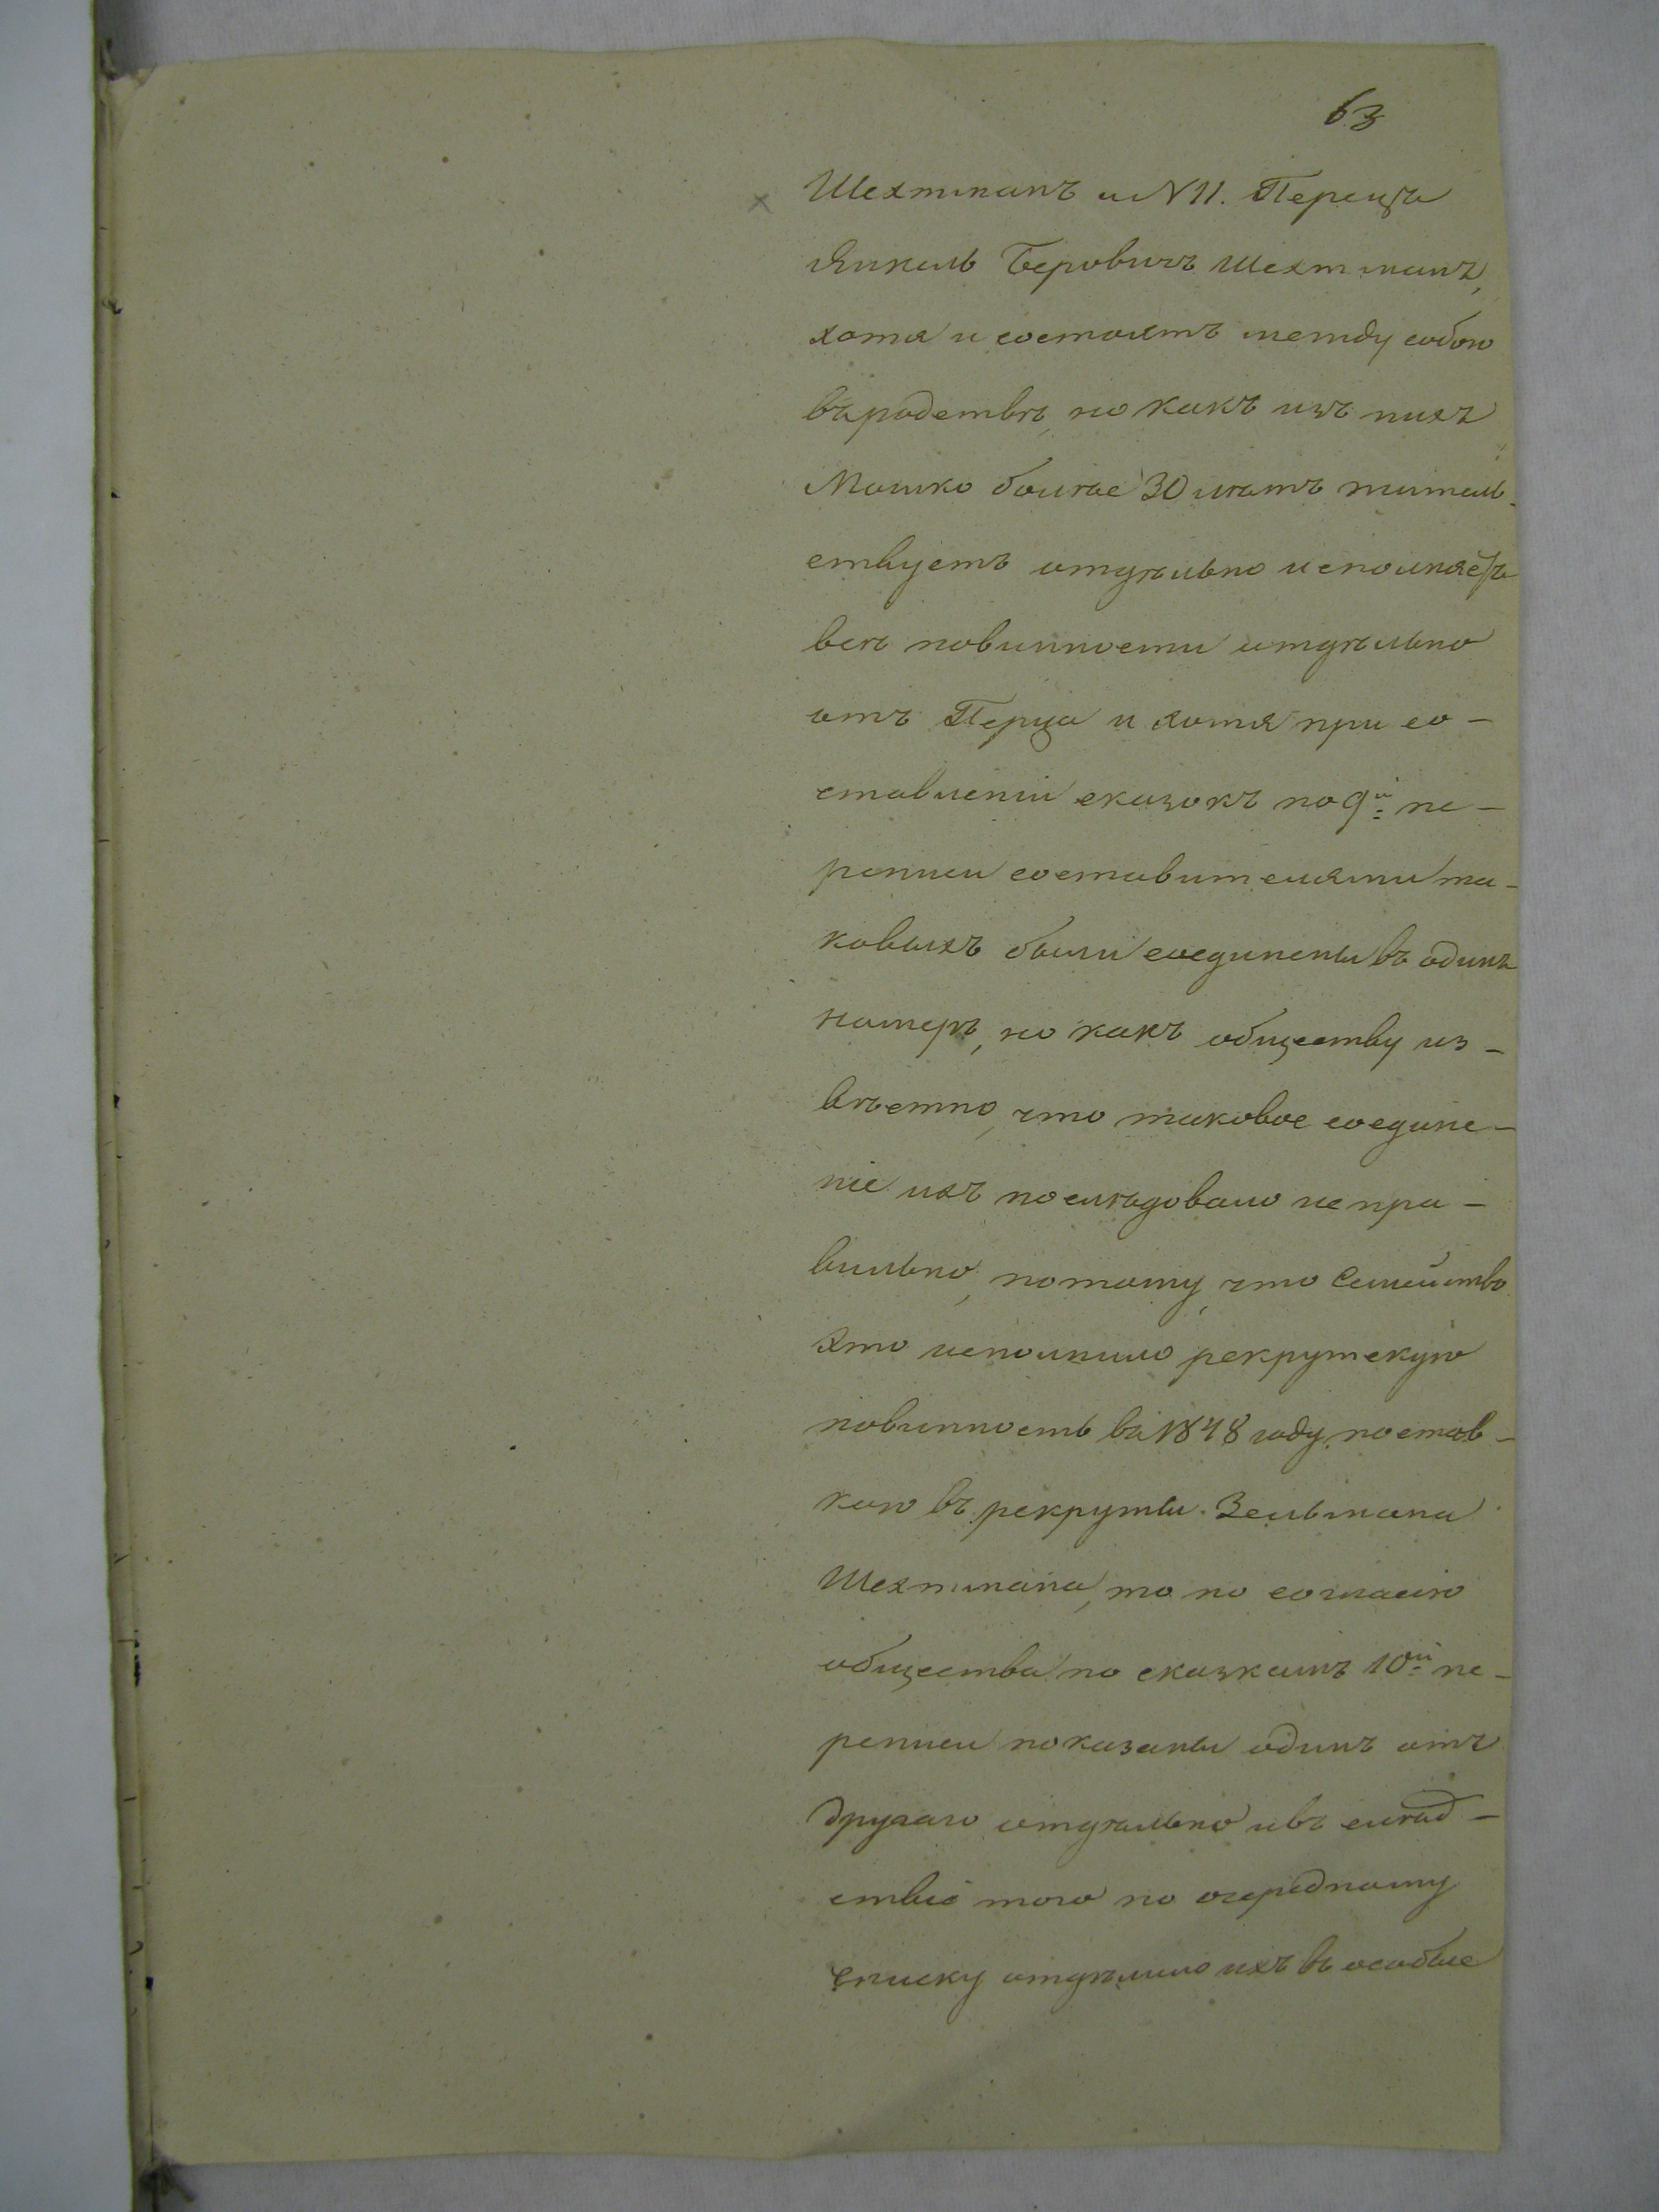 63
Шехтманъ и N 11. Перецъ
Янкель Беровичъ Шехтманъ,
хотя и состоятъ между собою
въ родствѣ, но какъ изъ нихъ
Мошко болѣе 30 лѣтъ житель-
ствуетъ отдѣльно исполняетъ
всѣ повинности отдѣльно
отъ Перца и хотя при со-
ставленіи сказокъ по 9й пе-
реписи составителями та-
ковыхъ были соединены въ одинъ
номеръ, но какъ обществу из-
вѣстно, что таковое соедине-
ніе ихъ послѣдовало непра-
вильно, потому, что Семейство
это исполнило рекрутскую
повинность въ 1848 году, постав-
кою въ рекруты Зельмана
Шехтмана, то по согласію
общества по сказкамъ 10й пе-
реписи показаны одинъ отъ
другаго отдѣльно и въ слѣд-
ствіе того по очередному
списку отдѣлило ихъ въ особые